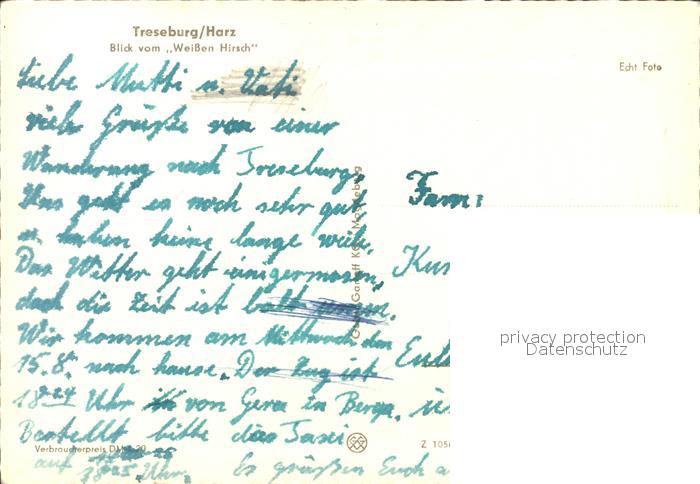 Treseburg/Harz
Blick vom „Weißen Hirsch"
Echt Foto
Liebe Mutti u. Vati
viele Grüße von einer
Wanderung nach Treseburg,
Uns geht es noch sehr gut
u. haben keine lange weile.
Das Wetter geht einigermasen,
doch die Zeit ist bald
Wir kommen am Mittwoch den
15.8. nach hause. Der Zug ist
18 Uhr von Gera in Berga.
Bestellt bitte das Taxi
auf Uhr.
Es grüßen Euch
Fam:
Verbraucherpreis DM
privacy protection
Datenschutz